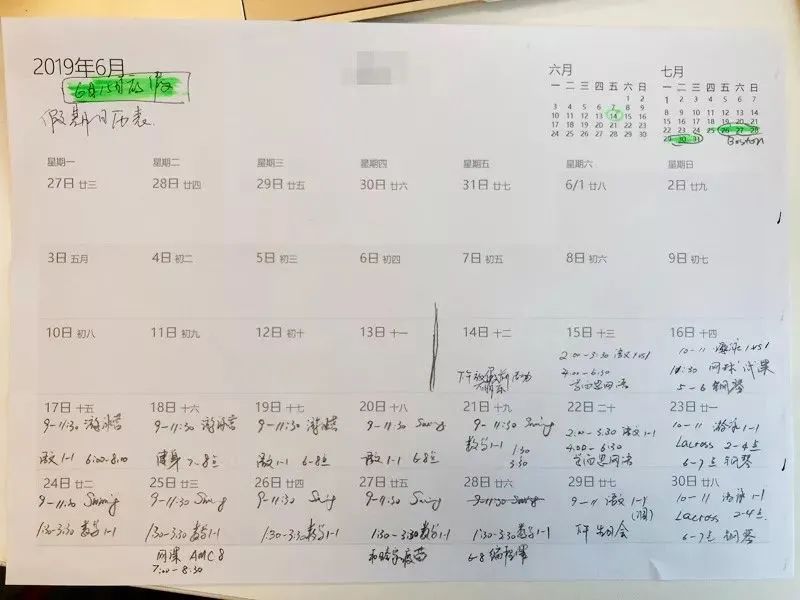 2019年6月
假期日历表
六月
一 二 三 四 五 六 日
1 2
3 4 5 6 7 8 9
10 11 12 13 14 15 16
17 18 19 20 21 22 23
24 25 26 27 28 29 30
七月
一 二 三 四 五 六 日
1 2 3 4 5 6 7
8 9 10 11 12 13 14
15 16 17 18 19 20 21
22 23 24 25 26 27 28
29 30 31
Boston
星期一 星期二 星期三 星期四 星期五 星期六 星期日
27日 廿三 28日 廿四 29日 廿五 30日 廿六 31日 廿七 6/1 廿八 2日 廿九
3日 五月 4日 初二 5日 初三 6日 初四 7日 初五 8日 初六 9日 初七
10日 初八 11日 初九 12日 初十 13日 十一 14日 十二 15日 十三 16日 十四
2:00-3:30 语文 1v1 10-11 游泳 1v1
4:00-6:30 网球
5-6 钢琴
17日 十五 18日 十六 19日 十七 20日 十八 21日 十九 22日 二十 23日 廿一
9-11:30 9-11:30 9-11:30 9-11:30 9-11:30 10-11 游泳 1-1
数学 1-1 1:30 2:00-3:30 语文 1-1 Lacross 2-4点
3:30 4:00-6:30
语文 1-1 6:00-8:00 健身 7-8点 语文 1-1 6-8点 语文 1-1 6-8点 6-7点 钢琴
24日 廿二 25日 廿三 26日 廿四 27日 廿五 28日 廿六 29日 廿七 30日 廿八
9-11:30 9-11:30 9-11:30 9-11:30 9-11:30 9-11 语文 1-1 10-11 游泳 1-1
1:30-3:30 数学 1-1 1:30-3:30 数学 1-1 1:30-3:30 数学 1-1 1:30-3:30 数学 1-1 1:30-3:30 数学 1-1 Lacross 2-4点
网课 AMC 8 6-8 编程课 6-7点 钢琴
7:00-8:30